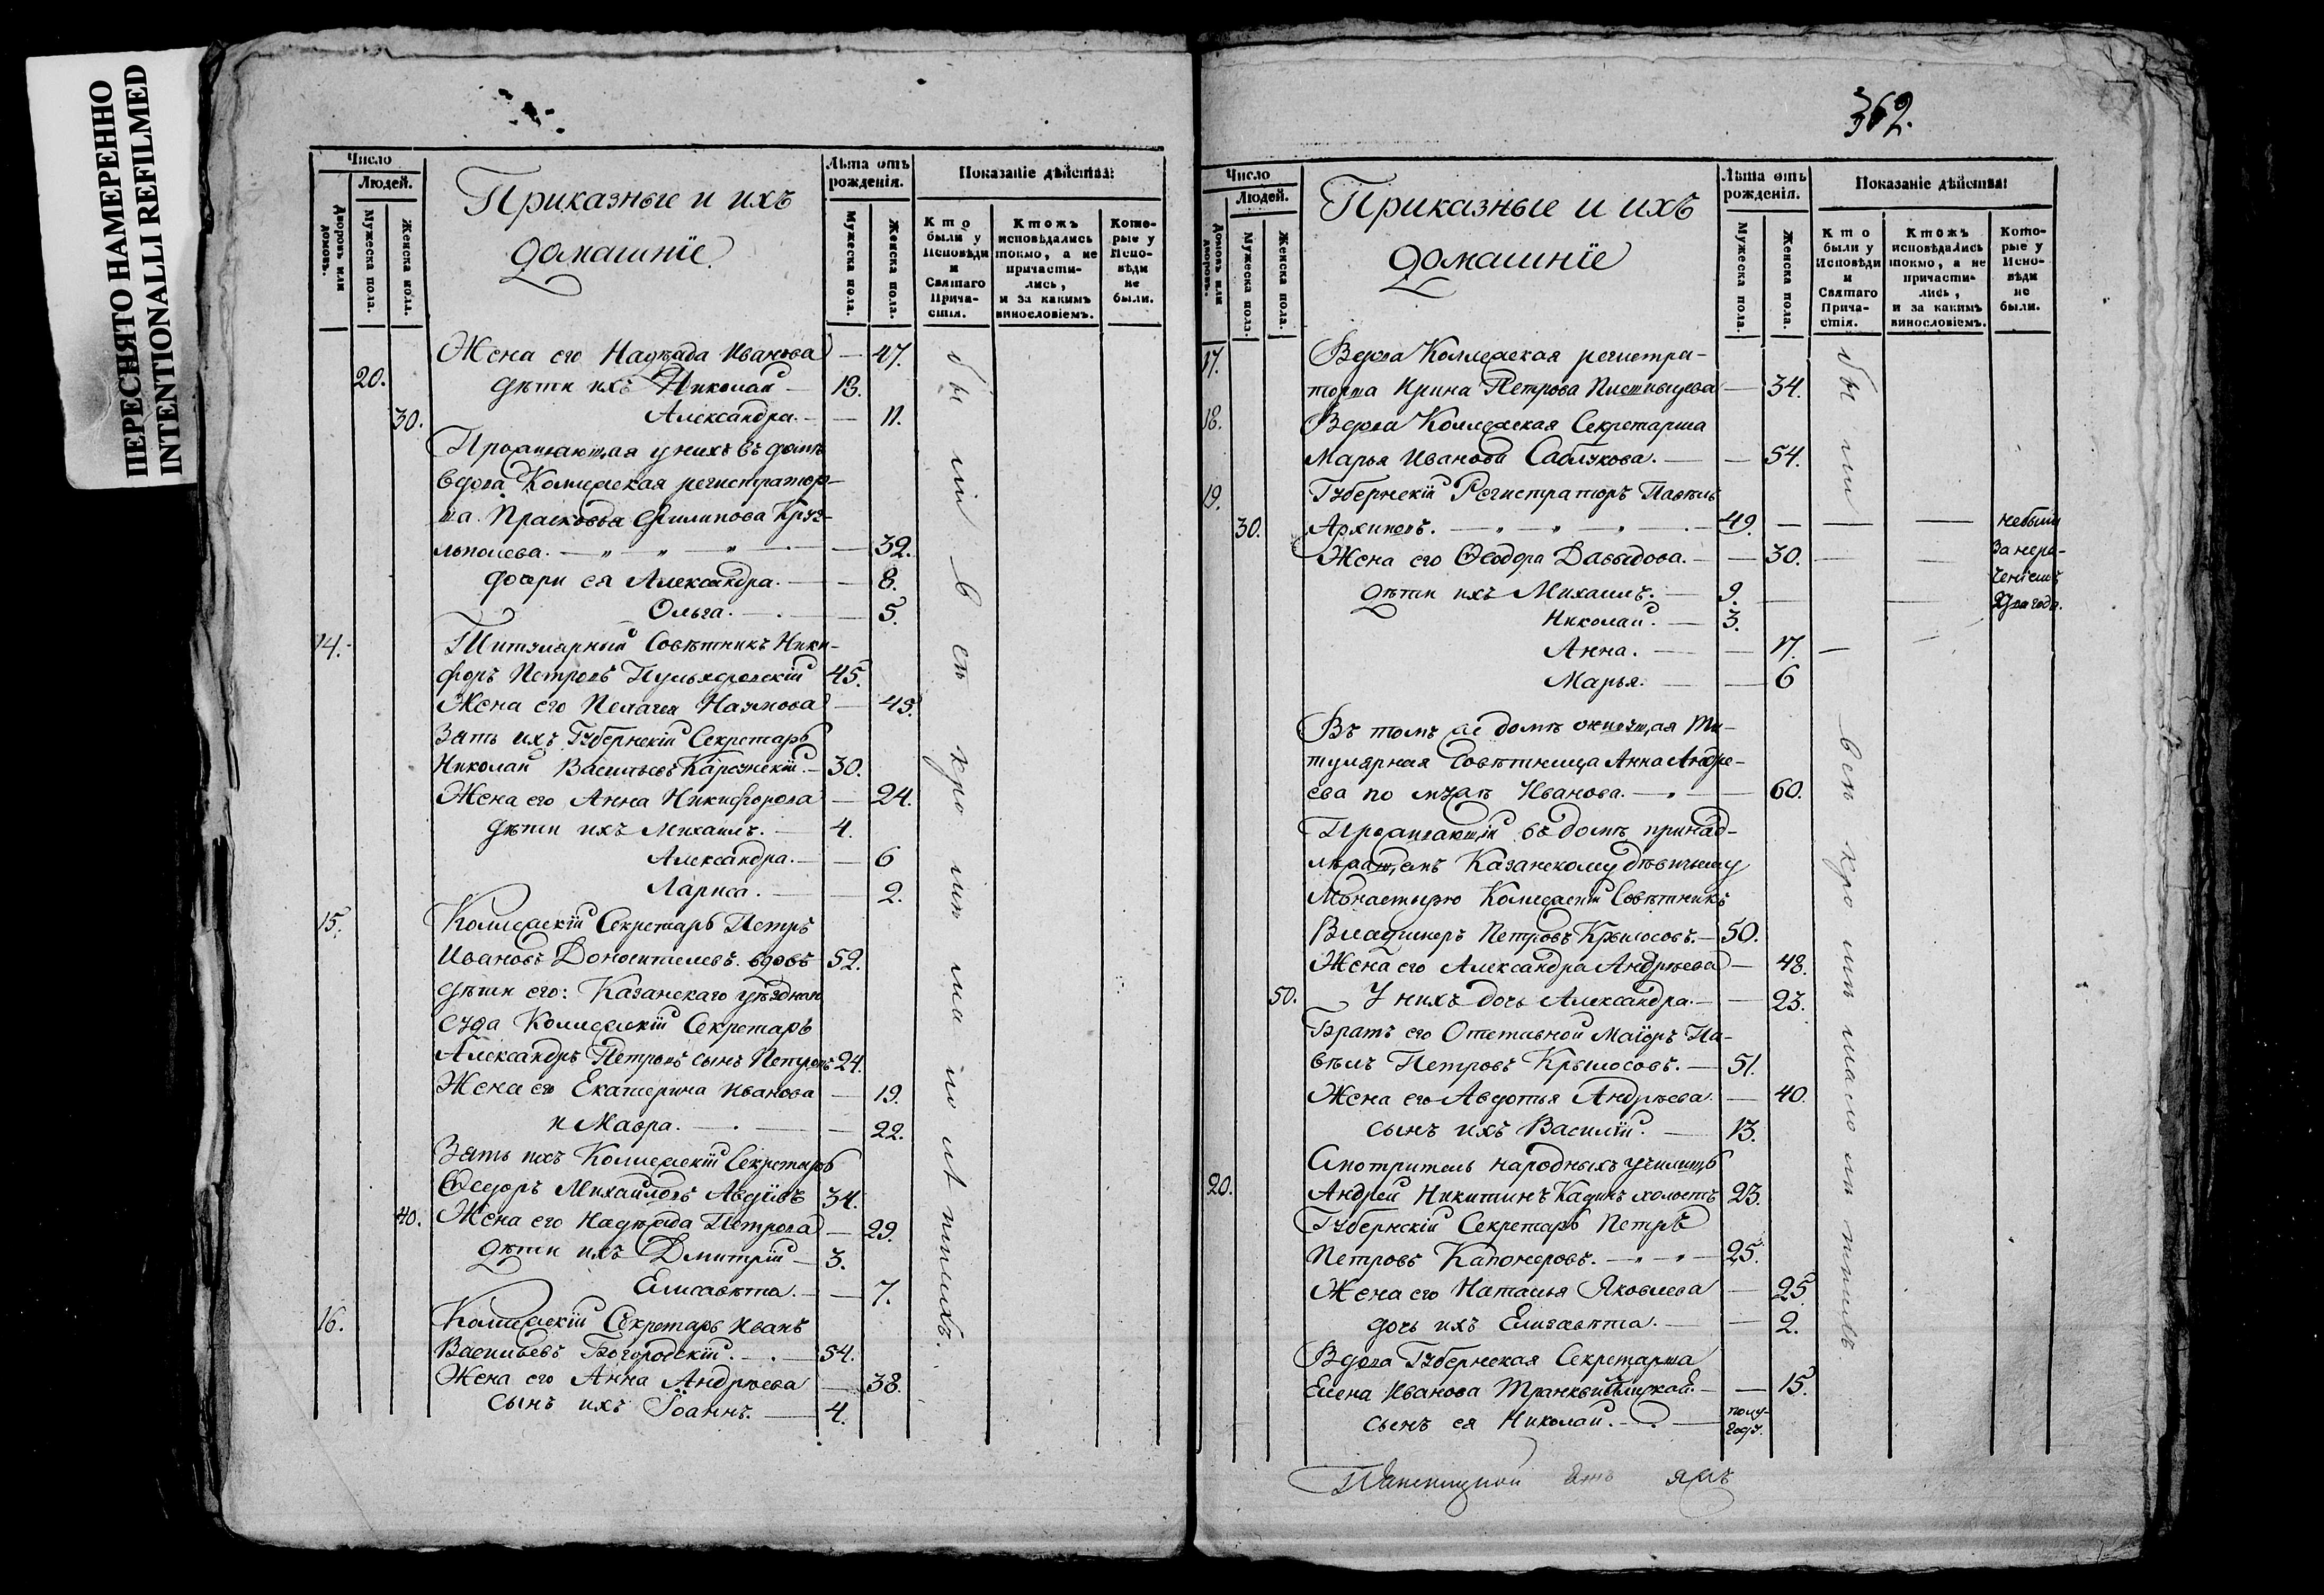 ПЕРЕСНЯТО НАМЕРЕННО
INTENTIONALLI REFILMED
Число
Людей.
Дворовъ или домовъ.
Мужеска пола.
Женска пола.
Приказные и ихъ
домашнїе
Лѣта отъ рожденія.
Мужеска пола.
Женска пола.
Показаніе дѣйства:
Кто были у Исповѣди и Святаго Прича-стія.
Ктожъ исповѣдались токмо, а не причасти-лись, и за какимъ винословіемъ.
Кото-рые у Испо-вѣди не были.
Жена его Надѣжда Иванова — 47.
20. дѣти ихъ Николай — 18.
30. Александра. — 11.
Проживающая у нихъ въ домѣ
вдова Коллежская регистратор-
ша Прасковья Филипова
32.
дочери ея Александра. — 8.
Ольга. — 5.
14. Титулярный Совѣтникъ Ники-
форъ Петровъ 45.
Жена его Пелагея Наумова — 45.
Зять ихъ Губернскій Секретарь
Николай Васильевъ — 30.
Жена его Анна Никифорова — 24.
дѣти ихъ Михаилъ. — 4.
Александра. — 6
Лариса. — 2.
15. Коллежскій Секретарь Петръ
Ивановъ Доноситаевъ вдовъ 52.
дѣти его: Казанскаго уѣзднаго
суда Коллежскій Секретарь
Александръ Петровъ сынъ Петровъ 24.
Жена его Екатерина Иванова — 19.
и Мавра. — 22.
Зять ихъ Коллежскій Секретарь
Ѳедоръ Михайловъ Авдѣевъ 34.
40. Жена его Надѣжда Петрова — 29.
дѣти ихъ Дмитрій — 3.
Елисавѣта. — 7.
16. Коллежскій Секретарь Иванъ
Васильевъ Богородскій. — 54.
Жена его Анна Андрѣева — 38.
Сынъ ихъ Іоаннъ. — 4.
были всѣ кромѣ малолѣтнихъ.
362.
Число
Людей.
Домовъ или дворовъ.
Мужеска пола.
Женска пола.
Приказные и ихъ
домашнїе
Лѣта отъ рожденія.
Мужеска пола.
Женска пола.
Показаніе дѣйства:
Кто были у Исповѣди и Святаго Прича-стія.
Ктожъ исповѣдались токмо, а не причасти-лись, и за какимъ винословіемъ.
Кото-рые у Испо-вѣди не были.
17. Вдова Коллежская регистра-
торша Ирина Петрова — 34.
18. Вдова Коллежская Секретарша
Марья Иванова Саблукова. — 54.
19. Губернскій Регистраторъ Павелъ
30. Архиповъ. — 49. — — — небыли
Жена его Ѳеодора Давыдова. — 30. — — За нера-
дѣти ихъ Михаилъ. — 9. — — ченіемъ
Николай. — 3. два года.
Анна. — 17. —
Марья. — 6
Въ томъ же домѣ живущая Ти-
тулярная Совѣтница Анна Андре-
ева по мужѣ Иванова. — 60.
Проживающій въ домѣ принад-
лежащемъ Казанскому дѣвичьему
Монастырю Коллежскій Совѣтникъ
Владимеръ Петровъ Крылосовъ. — 50.
Жена его Александра Андрѣева — 48.
50. У нихъ дочь Александра. — 23.
Братъ его Отставной Маіоръ Па-
вѣлъ Петровъ Крылосовъ. — 51.
Жена его Авдотья Андрѣева. — 40.
сынъ ихъ Василій. — 13.
Смотритель народныхъ училищъ
20. Андрей Никитинъ холостъ 23.
Губернскій Секретарь Петръ
Петровъ Капонеровъ. — 25.
Жена его Наталья Яковлева — 25.
дочь ихъ Елизавѣта. — 2.
Вдова Губернская Секретарша
Елена Иванова — 15.
сынъ ея Николай. — полу-
году.
были всѣ кромѣ малолѣтнихъ.